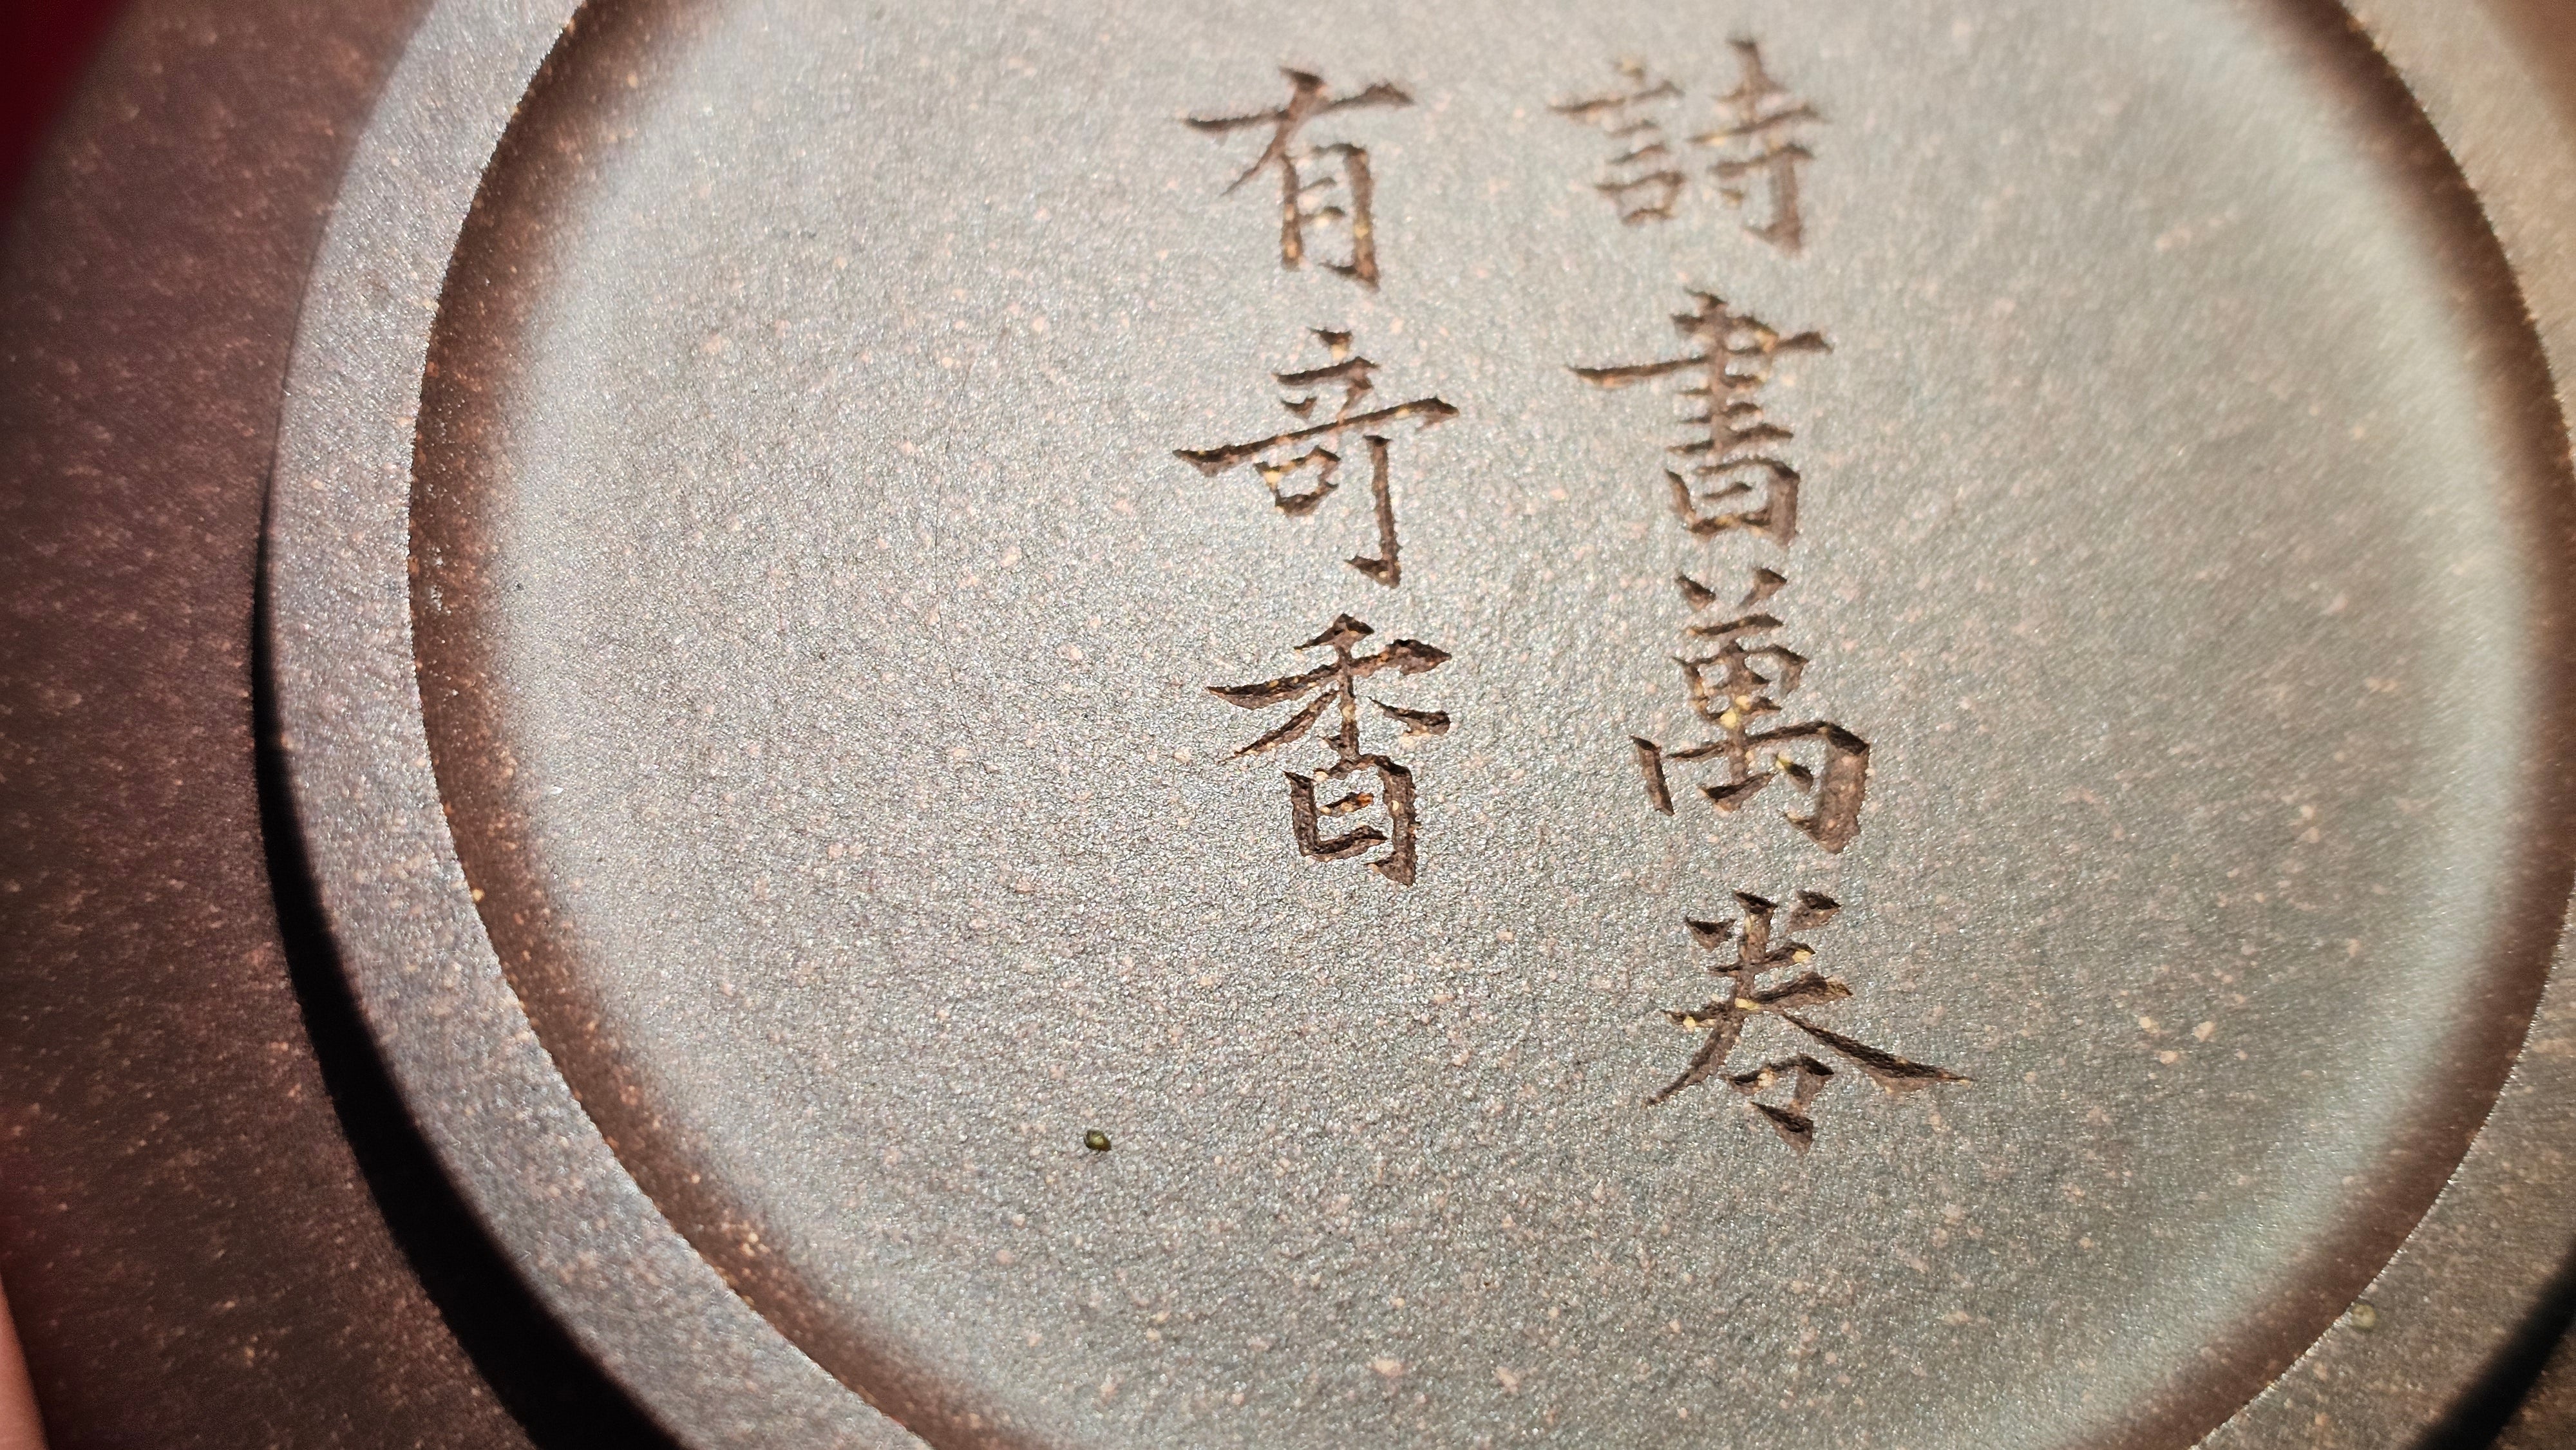 詩書萬卷
有竒香